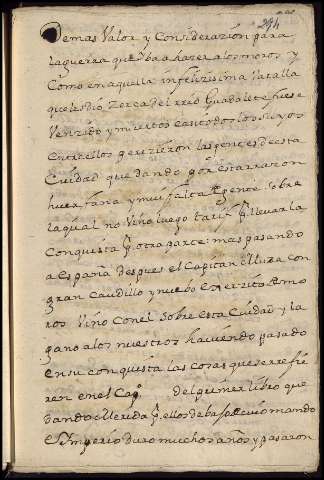 294
demas Valor y Consideraçion para
la guerra que yba a hazer a los moros y
Como en aquella infelizisima batalla
que les dio zerca del rrio Guadalete fuese
Venzido y muertos casi todos los suyos
Entre ellos perezieron las gentes de esta
Ciudad que dando por esta rraron
huerfana y mui falta de gente sobre
la qual no Vino luego tarif por llevar la
Conquista por otra parte: mas pasando
a España despues el Capitan Muza con
gran Caudillo y nuebo exerzito de mo
ros Vino Con el Sobre esta Ciudad y la
gano a los nuestros haviendo pasado
en su conquista las cosas que se rrefie
ren en el Cap.º del primer libro que
dando Merida por ellos debajo de cuio mando
e Imperio duro muchos años y pasaron